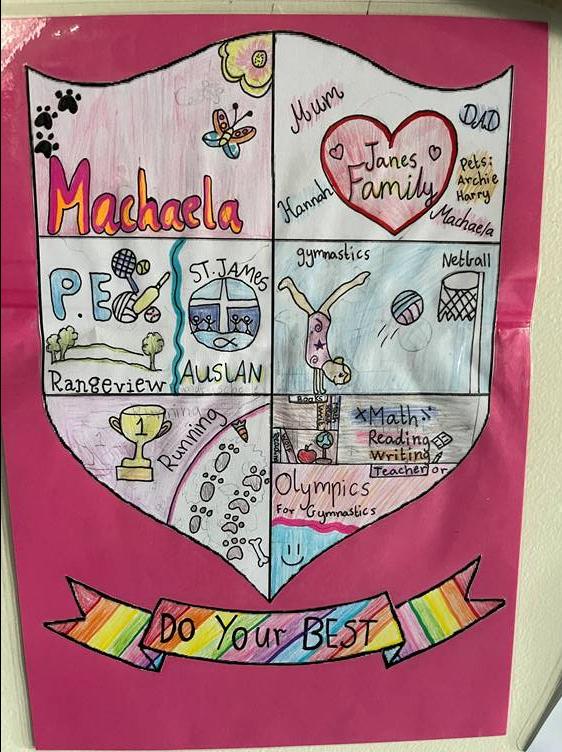 Machaela
Mum
DAD
Janes
Family
Hannah
Pets:
Archie
Harry
Machaela
P.E
Rangeview
ST. JAMES
AUSLAN
gymnastics
Netball
1
Running
Books
Math
Reading
Writing
Teacher or
Olympics
For Gymnastics
DO YOUR BEST